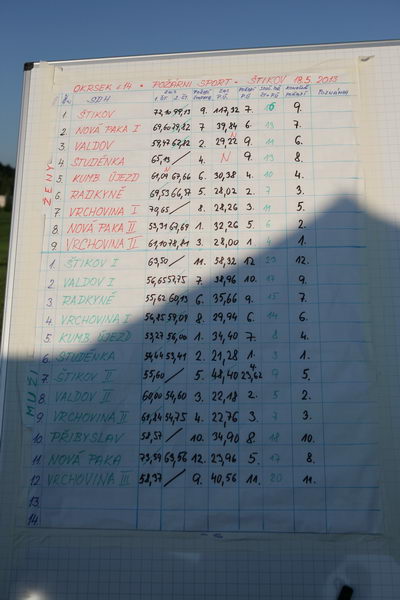 OKRSEK č.14 • POŽÁRNÍ SPORT - ŠTIKOV 18.5.2013
SDH POZNÁMKA
ŽENY
1. ŠTIKOV 9. 117,32 9. 9.
2 NOVÁ PAKA I 69,60 79,82 7. 39,84 6. 13 7.
3. VALDOV 2. 29,22 9. 11 6.
4 STUDĚNKA 65,13 4. N 9. 13 8.
5. KUMB. ÚJEZD 67,66 6. 30,38 4. 10 4.
6 RADKYNĚ 69,53 66,37 5. 28,02 2. 7 3.
7 VRCHOVINA I 70,65 8. 28,26 3. 11 5.
8 NOVÁ PAKA II 53,31 67,69 1. 32,26 5. 6 2.
9 VRCHOVINA II 61,10 78,81 3. 28,00 1. 4 1.
MUŽI
1. ŠTIKOV I 63,50 11. 58,32 12. 23 12.
2 VALDOV I 56,65 57,75 7. 38,96 10. 17 9.
3 RADKYNĚ 55,62 60,13 6. 35,66 9. 15 7.
4. VRCHOVINA I 56,85 59,09 8. 29,94 6. 14 6.
5 KUMB. ÚJEZD 53,27 56,00 1. 34,40 7. 8 4.
6. STUDĚNKA 54,44 53,41 2. 21,28 1. 3 1.
7. ŠTIKOV II 55,60 5. 48,40 23,62 4. 9 5.
8 VALDOV II 60,00 54,60 3. 22,18 2. 5 2.
9 VRCHOVINA II 61,84 54,75 4. 22,76 3. 7 3.
10 PŘIBYSLAV 58,57 10. 34,90 8. 18 10.
11 NOVÁ PAKA 73,59 63,56 12. 23,96 5. 17 8.
12 VRCHOVINA III 58,37 9. 40,56 11. 20 11.
13.
14.